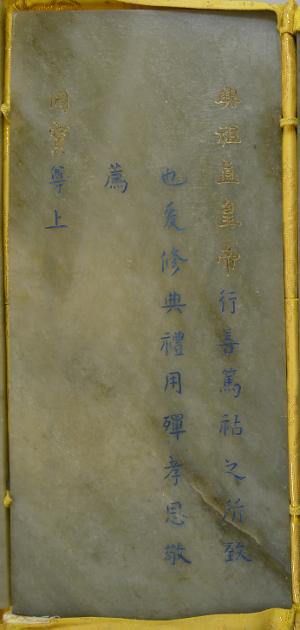 興祖直皇帝行善篤祜之所致
也爰修典禮用殫孝思敬
薦
冊寶尊上